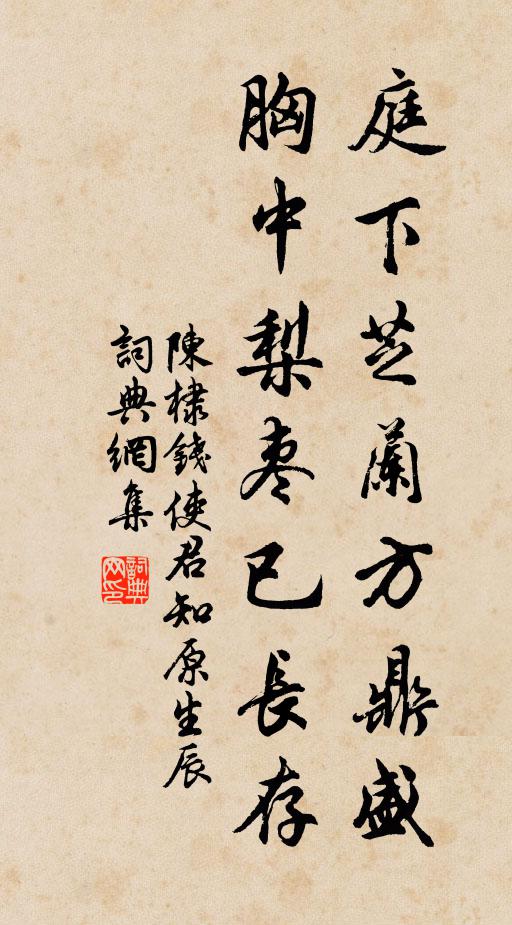 庭下芝蘭方鼎盛
胸中梨棗已長存
陳棣錢使君知原生辰
詞典網集
詞典網印